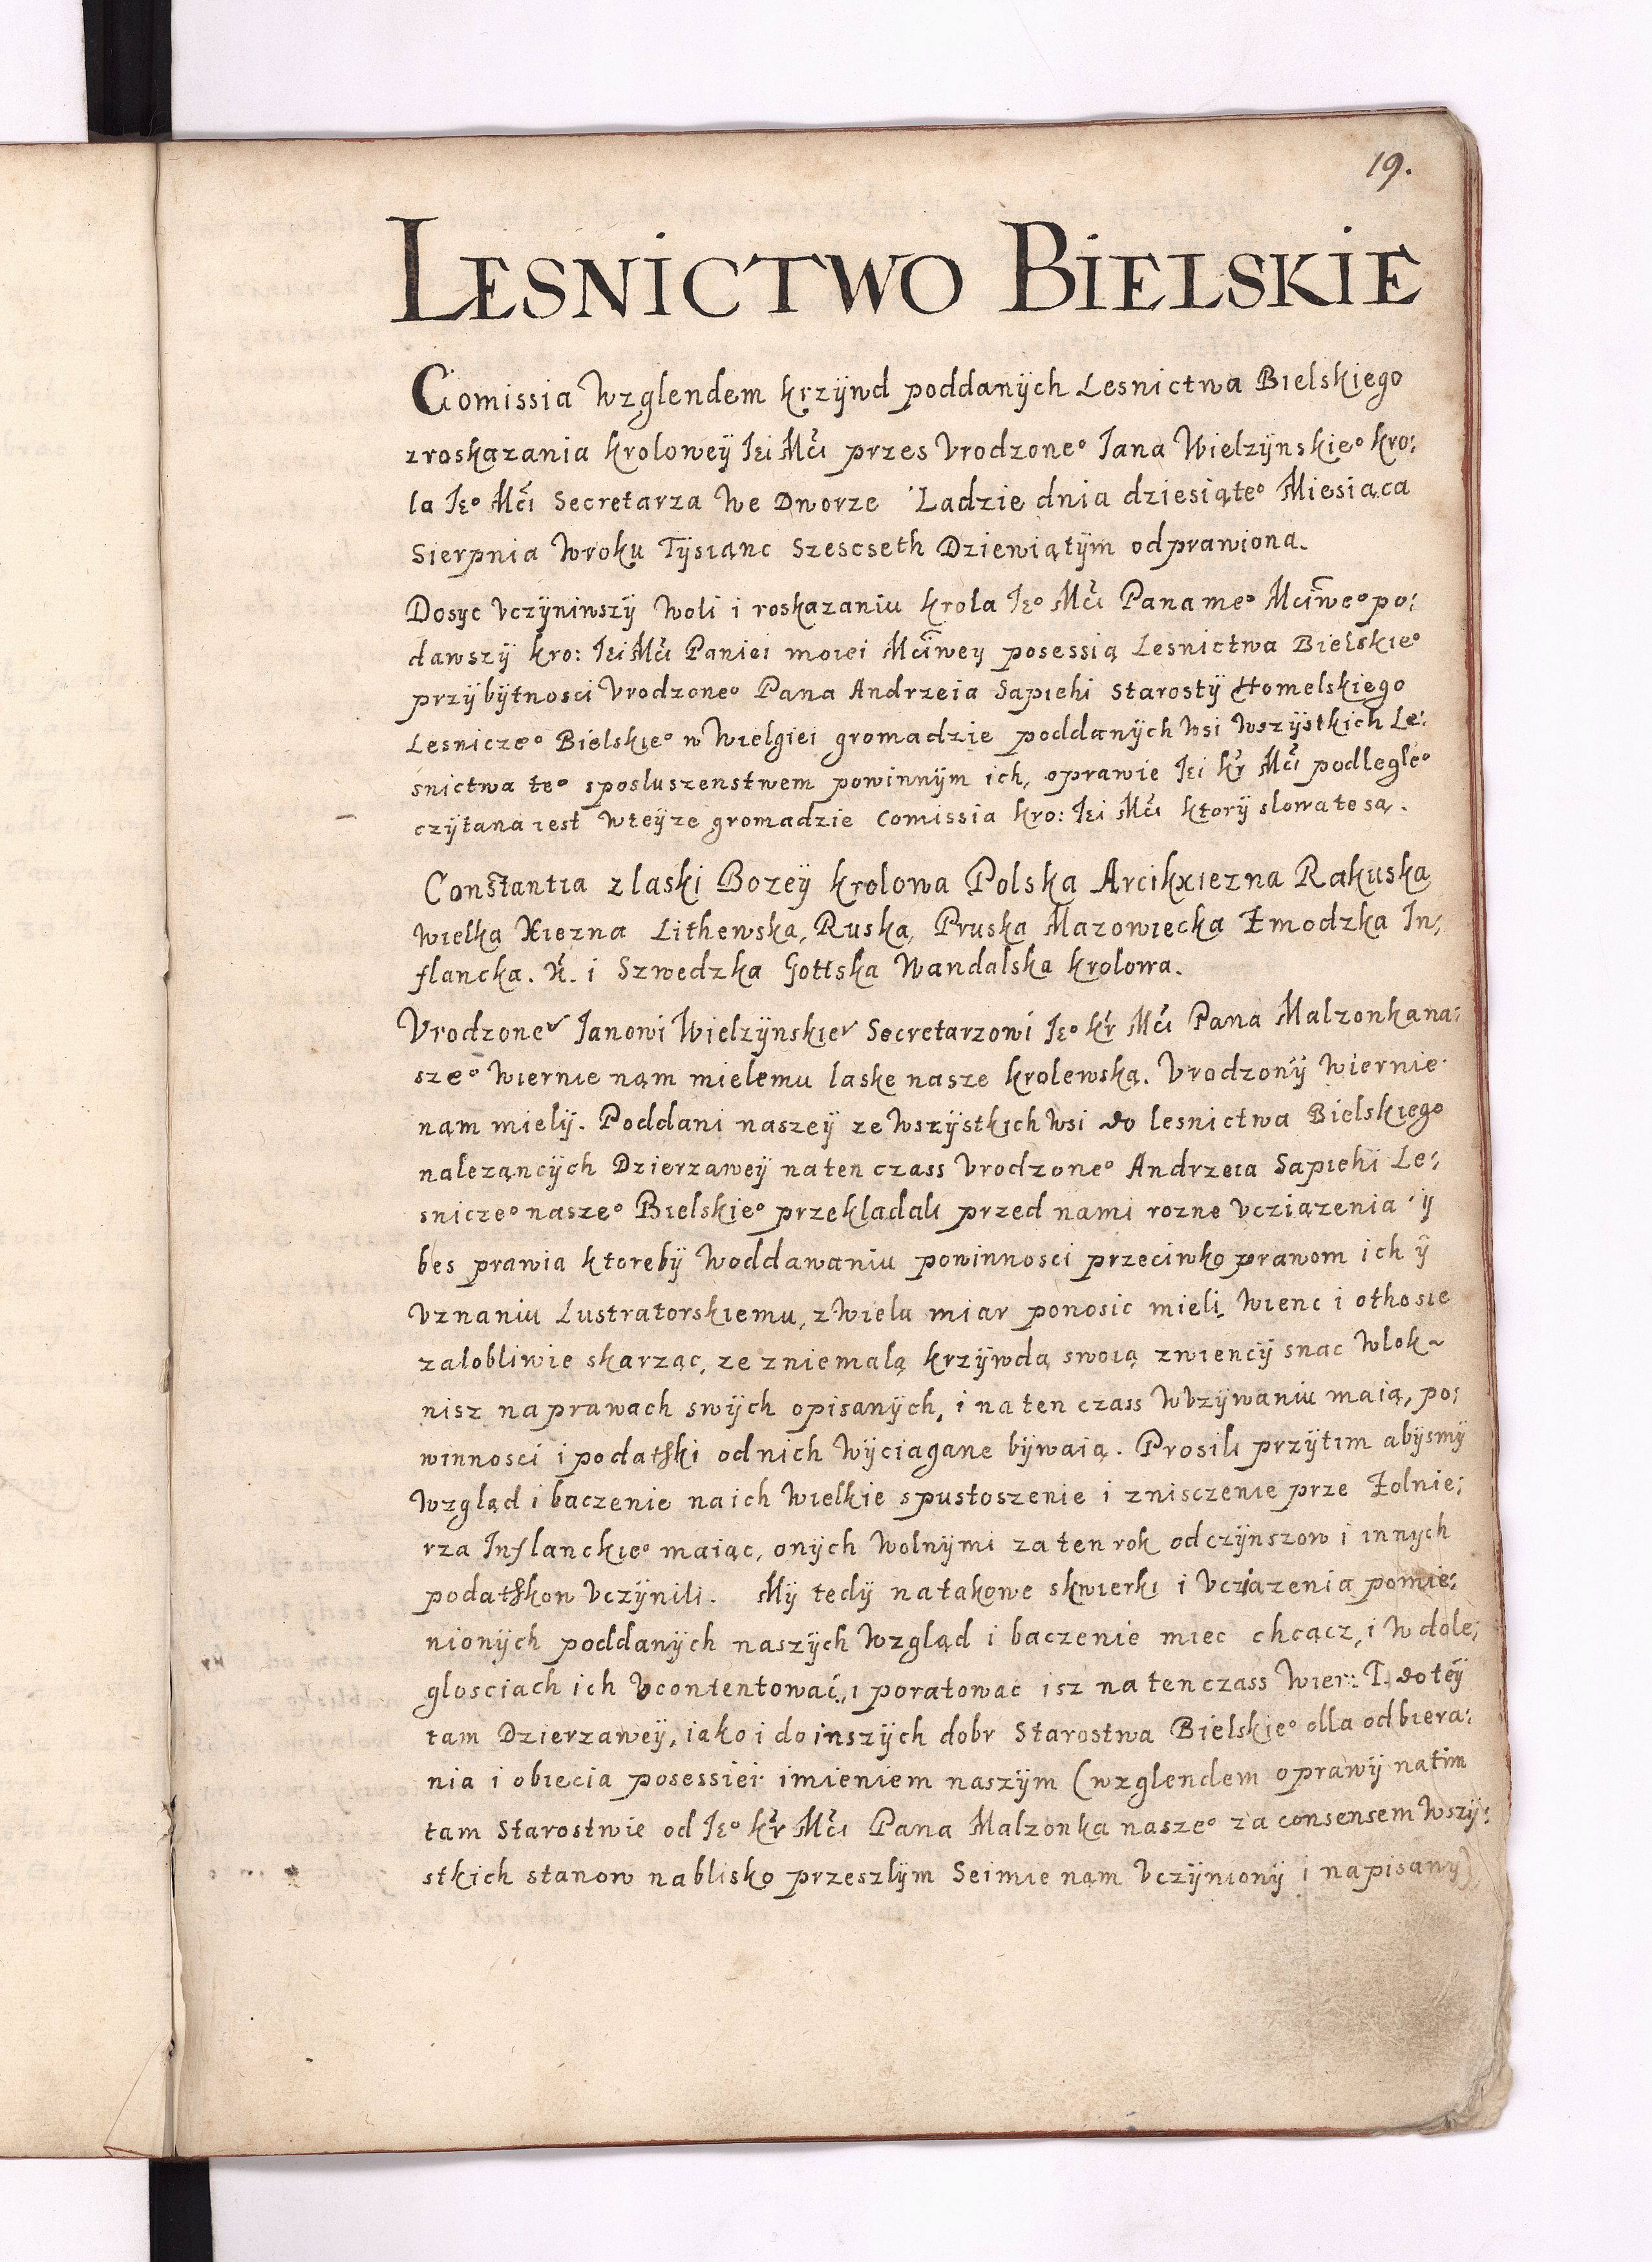 19.
LESNICTWO BIELSKIE
Comissia Wzglendem krzÿwd poddanÿch Lesnictwa Bielskiego
zroskazania kroloweÿ Jei Mći przes Vrodzone° Jana Wielzÿnskie° kro:
la Je° Mći Secretarza We Dworze Ladzie dnia dziesiąte° Miesiąca
Sierpnia Wroku Tÿsiąnc Szescseth Dziewiątÿm odprawiona.
Dosyc Vczÿniwszÿ Woli i roskazaniu krola Je° Mći Pana me° Mćiwe° po:
dawszÿ kro: Jei Mći Paniei moiei Mćiwey posessią Lesnictwa Bielskie°
przÿbÿtnosci Vrodzone° Pana Andrzeia Sapiehi Starostÿ Homelskiego
Lesnicze° Bielskie° w Wielgiei gromadzie poddanÿch Wsi Wszÿstkich Le:
snictwa te° sposluszenstwem powinnÿm ich, oprawie Jei kr Mći podległe°
czÿtana iest Wteÿze gromadzie Comissia kro: Jei Mći ktorÿ slowa te są.
Constantia zlaski Bozeÿ krolowa Polska Arcikxiezna Rakuska
Wielka Xiezna Lithewska, Ruska, Pruska Mazowiecka Zmodzka In:
flancka. &. i Szwedzka Gottska Wandalska krolowa.
Vrodzone Janowi Wielzÿnskie Secretarzowi Je° kr Mći Pana Malzonka na:
sze° Wiernie nąm mielemu laske nasze krolewską. Vrodzonÿ Wiernie
nąm mielÿ. Poddani naszeÿ ze Wszÿstkich Wsi do lesnictwa Bielskiego
nalezącÿch Dzierzaweÿ na ten czass Vrodzone° Andrzeia Sapiehi Le:
snicze° nasze° Bielskie° przekladali przed nami rozne Vciązenia ÿ
bes prawia ktorebÿ Woddawaniu powinnosci przeciwko prawom ich ÿ
Vznaniu Lustratorskiemu, zwielu miar ponosic mieli. Wienc i otho sie
załobliwie skarząc, ze zniemałą krzÿwdą swoią zwiencÿ snac Wlok
nisz na prawach swÿch opisanÿch, i na ten czass WVzÿwaniu maią, po:
winnosci i podathki od nich Wÿciągane bÿwaią. Prosili przÿtim abÿsmÿ
Wzgląd i baczenie na ich Wielkie spustoszenie i znisczenie prze Zolnie:
rza Inflanckie° maiąc, onÿch Wolnÿmi za ten rok odczÿnszow i innych
podathkow Vczÿnili. Mÿ tedÿ na takowe skwierki i Vciązenia pomie:
nionÿch poddanÿch naszÿch Wzgląd i baczenie miec chcącz, i Wdole:
glosciach ich Vcontentowac, i poratowac isz na ten czass Wier: T. do teÿ
tam Dzierzaweÿ, iako i do inszÿch dobr Starostwa Bielskie° dlla odbiera:
nia i obiecia posessiei imieniem naszÿm (wzglendem oprawÿ na tim
tam Starostwie od Je° kr Mći Pana Malzonka nasze° za consensem Wszÿ:
stkich stanow nablisko przeszlÿm Seimie nąm Vczÿnionÿ i napisanÿ)